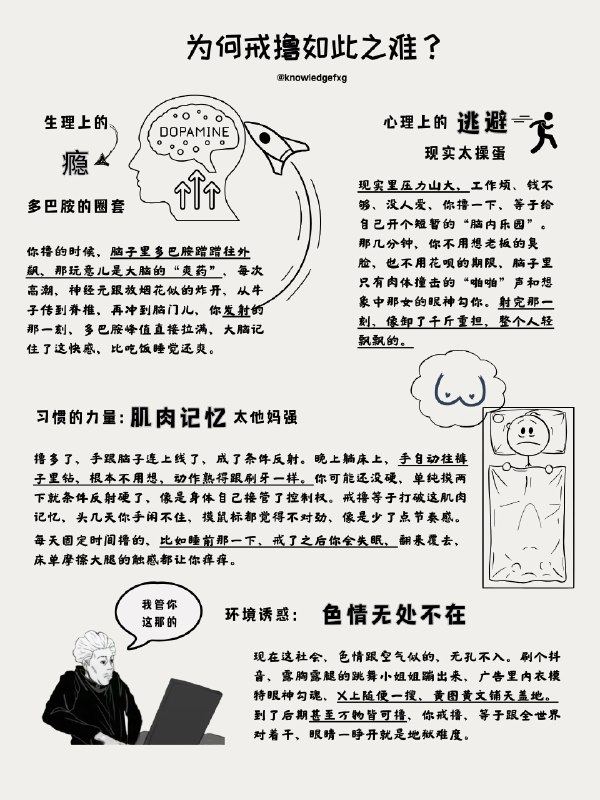 为何戒撸如此之难？
@knowledgefxg
生理上的
瘾
DOPAMINE
多巴胺的圈套
你撸的时候，脑子里多巴胺蹭蹭往外
飙，那玩意儿是大脑的“爽药”，每次
高潮，神经元跟放烟花似的炸开，从牛
子传到脊椎，再冲到脑门儿，你发射的
那一刻，多巴胺峰值直接拉满，大脑记
住了这快感，比吃饭睡觉还爽。
心理上的 逃避
现实太操蛋
现实里压力山大，工作烦、钱不
够、没人爱，你撸一下，等于给
自己开个短暂的“脑内乐园”。
那几分钟，你不用想老板的臭
脸，也不用花呗的期限，脑子里
只有肉体撞击的“啪啪”声和想
象中那女的眼神勾你。射完那一
刻，像卸了千斤重担，整个人轻
飘飘的。
习惯的力量：肌肉记忆 太他妈强
撸多了，手跟脑子连上线了，成了条件反射。晚上躺床上，手自动往裤
子里钻，根本不用想，动作熟得跟刷牙一样。你可能还没硬，单纯摸两
下就条件反射硬了，像是身体自己接管了控制权。戒撸等于打破这肌肉
记忆，头几天你手闲不住，摸鼠标都觉得不对劲，像是少了点节奏感。
每天固定时间撸的，比如睡前那一下，戒了之后你会失眠，翻来覆去，
床单摩擦大腿的触感都让你痒痒。
我管你
这那的
环境诱惑： 色情无处不在
现在这社会，色情跟空气似的，无孔不入。刷个抖
音，露胸露腿的跳舞小姐姐蹦出来，广告里内衣模
特眼神勾魂，X上随便一搜，黄图黄文铺天盖地。
到了后期甚至万物皆可撸，你戒撸，等于跟全世界
对着干，眼睛一睁开就是地狱难度。